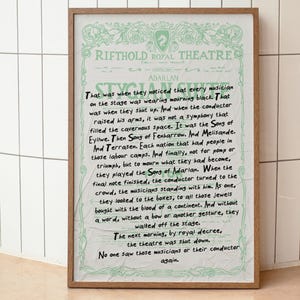 RIFTHOLD ROYAL THEATRE
ADARLAN
STYGIAN SUITE
That was when they noticed that every musician
on the stage was wearing mourning black. That
was when they shut up. And when the conductor
raised his arms, it was not a symphony that
filled the cavernous space. It was the Song of
Eyllwe. Then Song of Fenharrow. And Melisande.
And Terrasen. Each nation that had people in
those labour camps. And finally, not for pomp or
triumph, but to mourn what they had become,
they played the Song of Adarlan. When the
final note finished, the conductor turned to the
crowd, the musicians standing with him. As one,
they looked to the boxes, to all those jewels
bought with the blood of a continent. And without
a word, without a bow or another gesture, they
walked off the stage.
The next morning, by royal decree,
the theatre was shut down.
No one saw those musicians or their conductor
again.